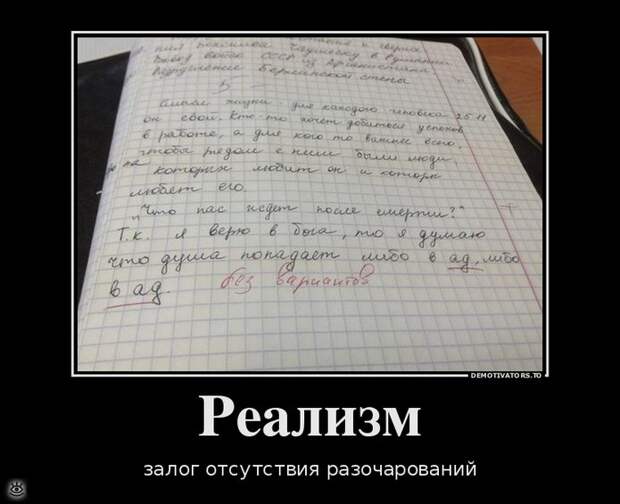 режима Чаушеску в Румынии
Вывод войск СССР из Афганистана
Разрушение Берлинской стены
Смысл жизни для каждого человека 25.11
он свой. Кто-то хочет добиться успехов
в работе, а для кого то важнее всего,
чтобы рядом с ним были люди,
которых любит он и которые
любят его.
"Что нас ждет после смерти?"
Т.к. я верю в бога, то я думаю
что душа попадает либо в ад, либо
в ад. без вариантов
DEMOTIVATORS.TO
Реализм
залог отсутствия разочарований